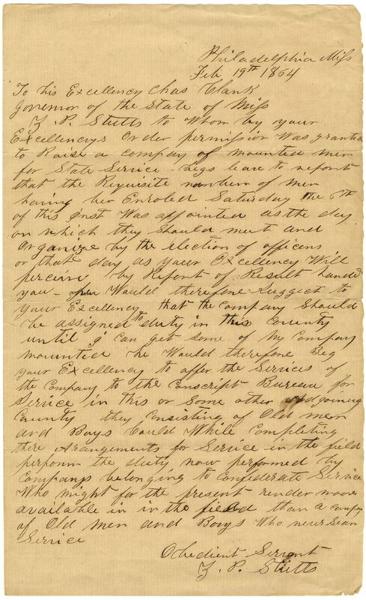 Philadelphia Miss
Feb 19th 1864
To his Excellency Chas Clark
Governor of the State of Miss
P. Stutts to Whom by your
Excellencys Order permission was granted
to Raise a company of mounted men
for State Service - begs leave to report
that the Requisite number of men
having been Enroled Saturday the 6th
of this Inst Was appointed as the day
on which they should meet and
Organize by the election of officers
on that day as your Excellency Will
percieve by Report of Result handed
you - Would therefore Suggest to
your Excellency that the company Should
be assigned to duty in this County
until I can get some of My Company
mounted he Would therefore beg
your Excellency to offer the Services of
the Company to the Conscript Bureau for
Service in this or Some other adjoining
County they Consisting of Old men
and Boys Could While Completing
there Arangements for Service in the field
perform the duty now performed by
Companys belonging to Confederate Service
Who might for the present render more
available in in the field than a company
of Old men and Boys Who never Seen
Service
Obedient Servent
P. Stutts